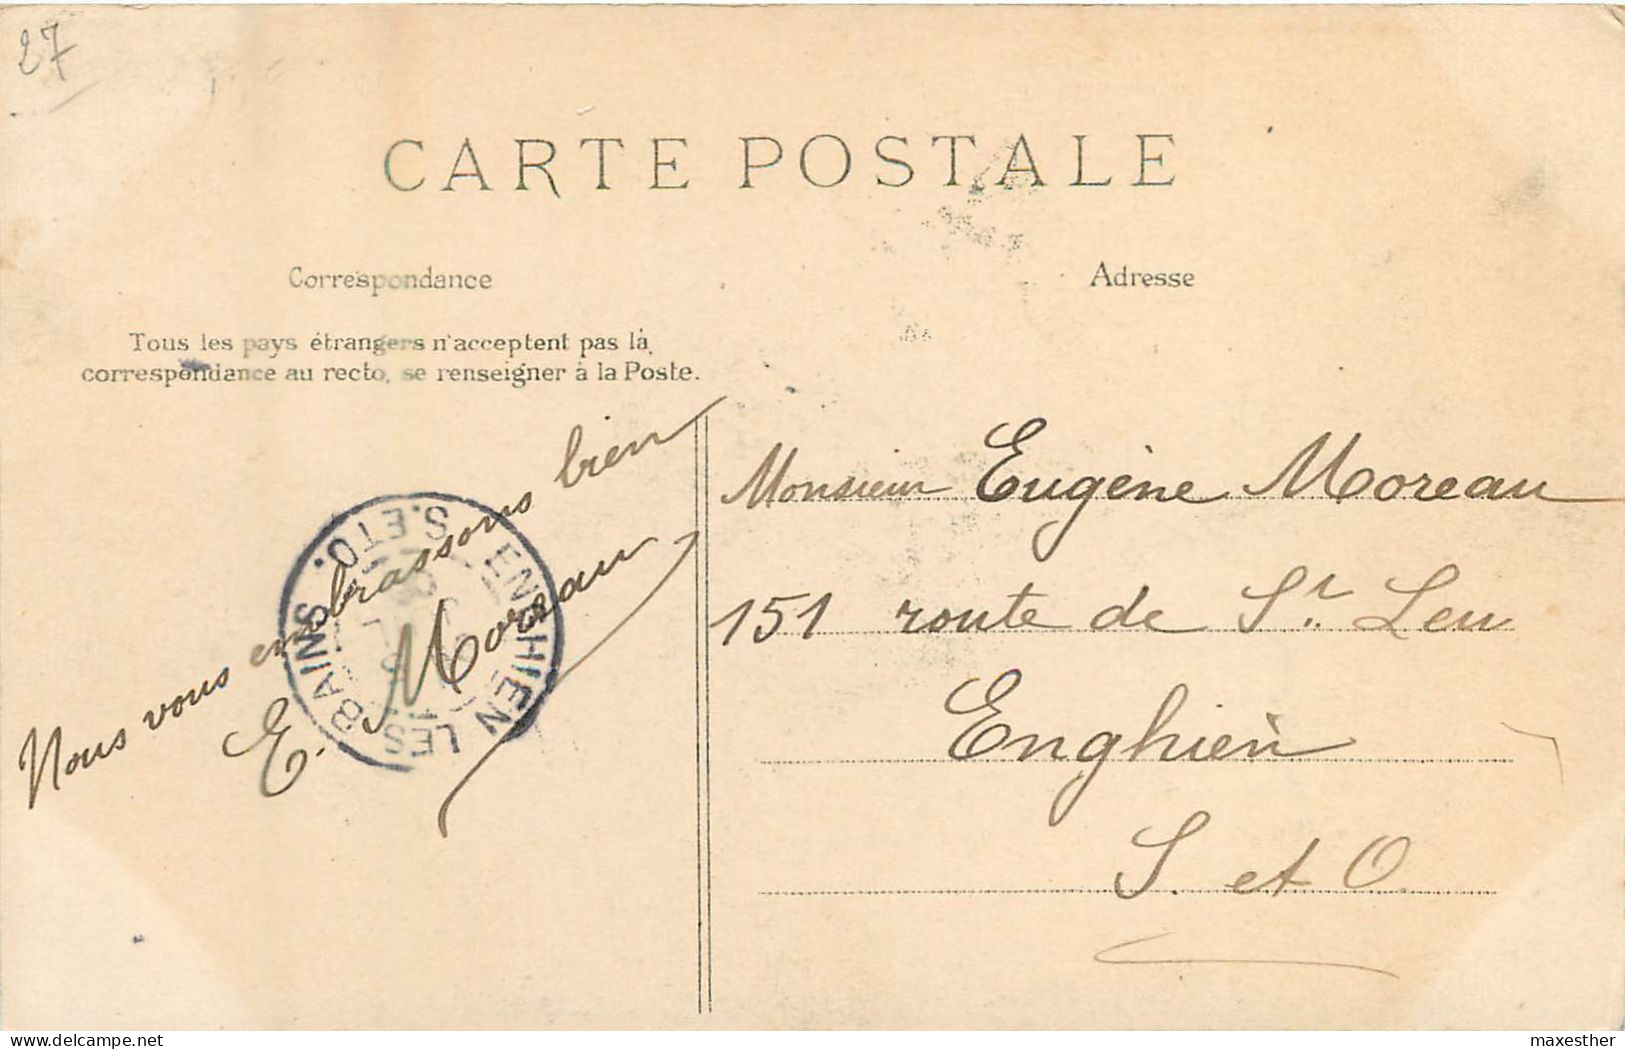 27
CARTE POSTALE
Correspondance
Adresse
Tous les pays étrangers n'acceptent pas la
correspondance au recto, se renseigner à la Poste.
Nous vous embrassons bien
E. Moreau
ENGHIEN LES BAINS
S. ET O.
Monsieur Eugène Moreau
151 route de St. Leu
Enghien
S. et O.
www.delcampe.net
maxesther